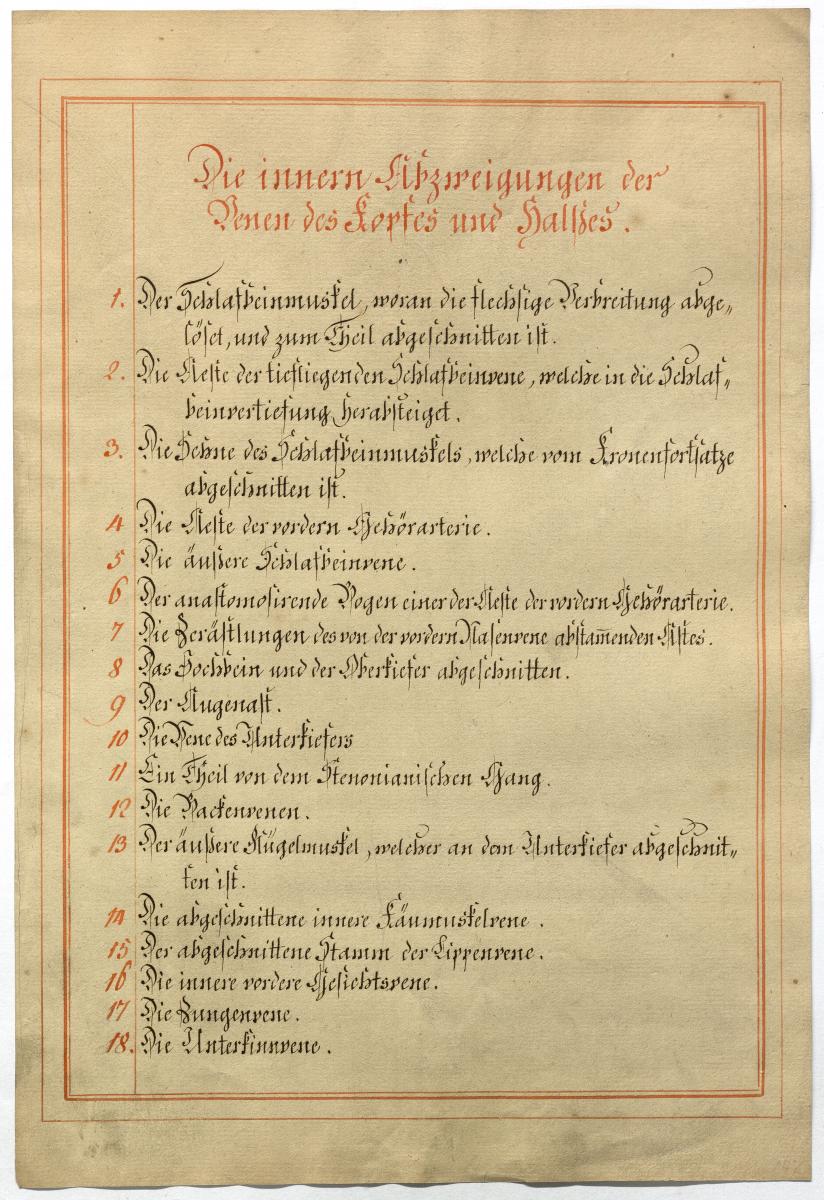 Die innern Abzweigungen der
Venen des Kopfes und Halßes.
1. Der Schlafbeinmuskel, woran die flechsige Verbreitung abge„
löset, und zum Theil abgeschnitten ist.
2. Die Aeste der tiefliegenden Schlafbeinvene, welche in die Schlaf„
beinvertiefung herabsteiget.
3. Die Sehne des Schlafbeinmuskels, welche vom Kronenfortsatze
abgeschnitten ist.
4 Die Aeste der vordern Gehörarterie.
5 Die äußere Schlafbeinvene.
6 Der anastomosirende Bogen einer der Aeste der vordern Gehörarterie.
7 Die Zerästlungen des von der vordern Nasenvene abstam̅enden Astes.
8 Das Jochbein und der Oberkiefer abgeschnitten.
9 Der Augenast.
10 Die Vene des Unterkiefers
11 Ein Theil von dem Stenonianischen Gang.
12 Die Backenvenen.
13 Der äußere Flügelmuskel, welcher an dem Unterkiefer abgeschnit„
ten ist.
14 Die abgeschnittene innere Käumuskelvene.
15 Der abgeschnittene Stamm der Lippenvene.
16 Die innere vordere Gesichtsvene.
17 Die Zungenvene.
18. Die Unterkinnvene.